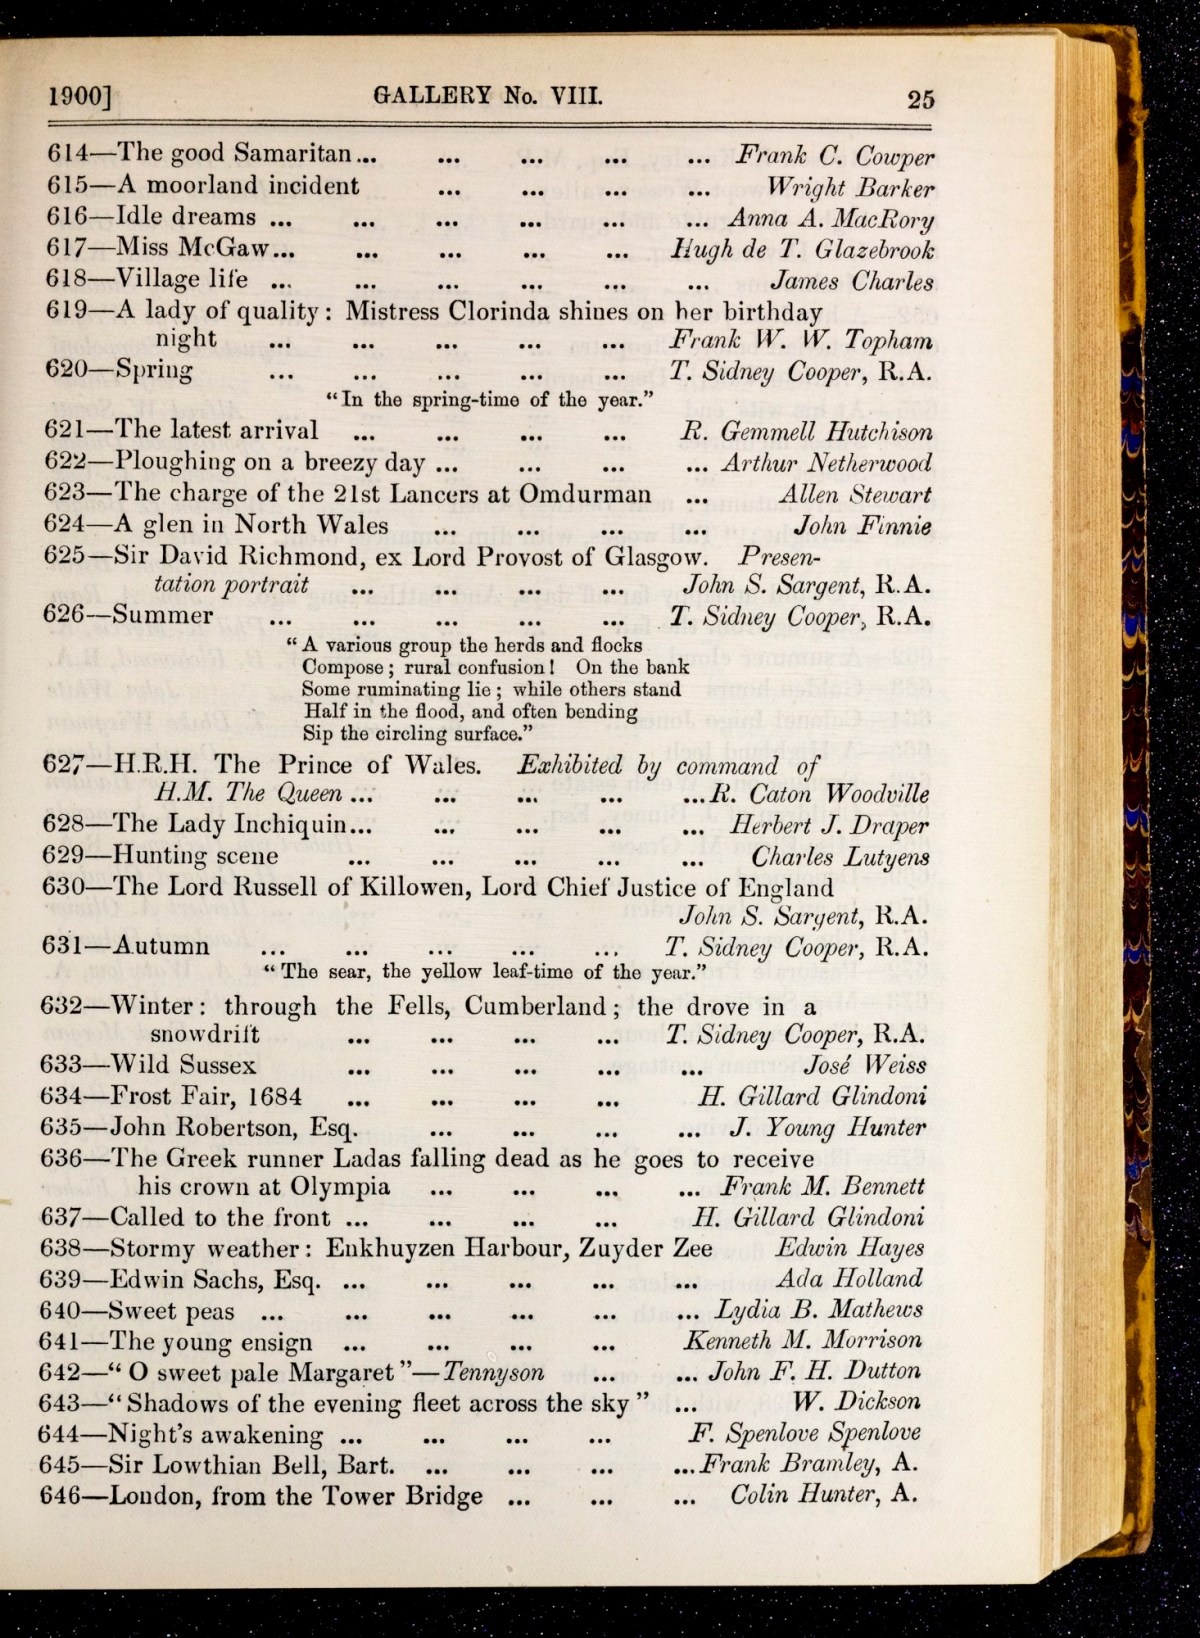 1900] GALLERY No. VIII. 25
614—The good Samaritan... ... ... ... ... Frank C. Cowper
615—A moorland incident ... ... ... ... Wright Barker
616—Idle dreams ... ... ... ... ... ... Anna A. MacRory
617—Miss McGaw... ... ... ... ... Hugh de T. Glazebrook
618—Village life ... ... ... ... ... ... James Charles
619—A lady of quality: Mistress Clorinda shines on her birthday
night ... ... ... ... ... Frank W. W. Topham
620—Spring ... ... ... ... ... T. Sidney Cooper, R.A.
"In the spring-time of the year."
621—The latest arrival ... ... ... ... R. Gemmell Hutchison
622—Ploughing on a breezy day ... ... ... ... Arthur Netherwood
623—The charge of the 21st Lancers at Omdurman ... Allen Stewart
624—A glen in North Wales ... ... ... ... John Finnie
625—Sir David Richmond, ex Lord Provost of Glasgow. Presen-
tation portrait ... ... ... ... John S. Sargent, R.A.
626—Summer ... ... ... ... ... T. Sidney Cooper, R.A.
"A various group the herds and flocks
Compose; rural confusion! On the bank
Some ruminating lie; while others stand
Half in the flood, and often bending
Sip the circling surface."
627—H.R.H. The Prince of Wales. Exhibited by command of
H.M. The Queen ... ... ... ... ...R. Caton Woodville
628—The Lady Inchiquin... ... ... ... ... Herbert J. Draper
629—Hunting scene ... ... ... ... ... Charles Lutyens
630—The Lord Russell of Killowen, Lord Chief Justice of England
John S. Sargent, R.A.
631—Autumn ... ... ... ... ... T. Sidney Cooper, R.A.
"The sear, the yellow leaf-time of the year."
632—Winter: through the Fells, Cumberland; the drove in a
snowdrift ... ... ... ... T. Sidney Cooper, R.A.
633—Wild Sussex ... ... ... ... ... José Weiss
634—Frost Fair, 1684 ... ... ... ... H. Gillard Glindoni
635—John Robertson, Esq. ... ... ... ... J. Young Hunter
636—The Greek runner Ladas falling dead as he goes to receive
his crown at Olympia ... ... ... ... Frank M. Bennett
637—Called to the front ... ... ... ... H. Gillard Glindoni
638—Stormy weather: Enkhuyzen Harbour, Zuyder Zee Edwin Hayes
639—Edwin Sachs, Esq. ... ... ... ... ... Ada Holland
640—Sweet peas ... ... ... ... ... ... Lydia B. Mathews
641—The young ensign ... ... ... ... Kenneth M. Morrison
642—"O sweet pale Margaret"—Tennyson ... ... John F. H. Dutton
643—"Shadows of the evening fleet across the sky" ... W. Dickson
644—Night's awakening ... ... ... ... F. Spenlove Spenlove
645—Sir Lowthian Bell, Bart. ... ... ... ...Frank Bramley, A.
646—London, from the Tower Bridge ... ... ... Colin Hunter, A.